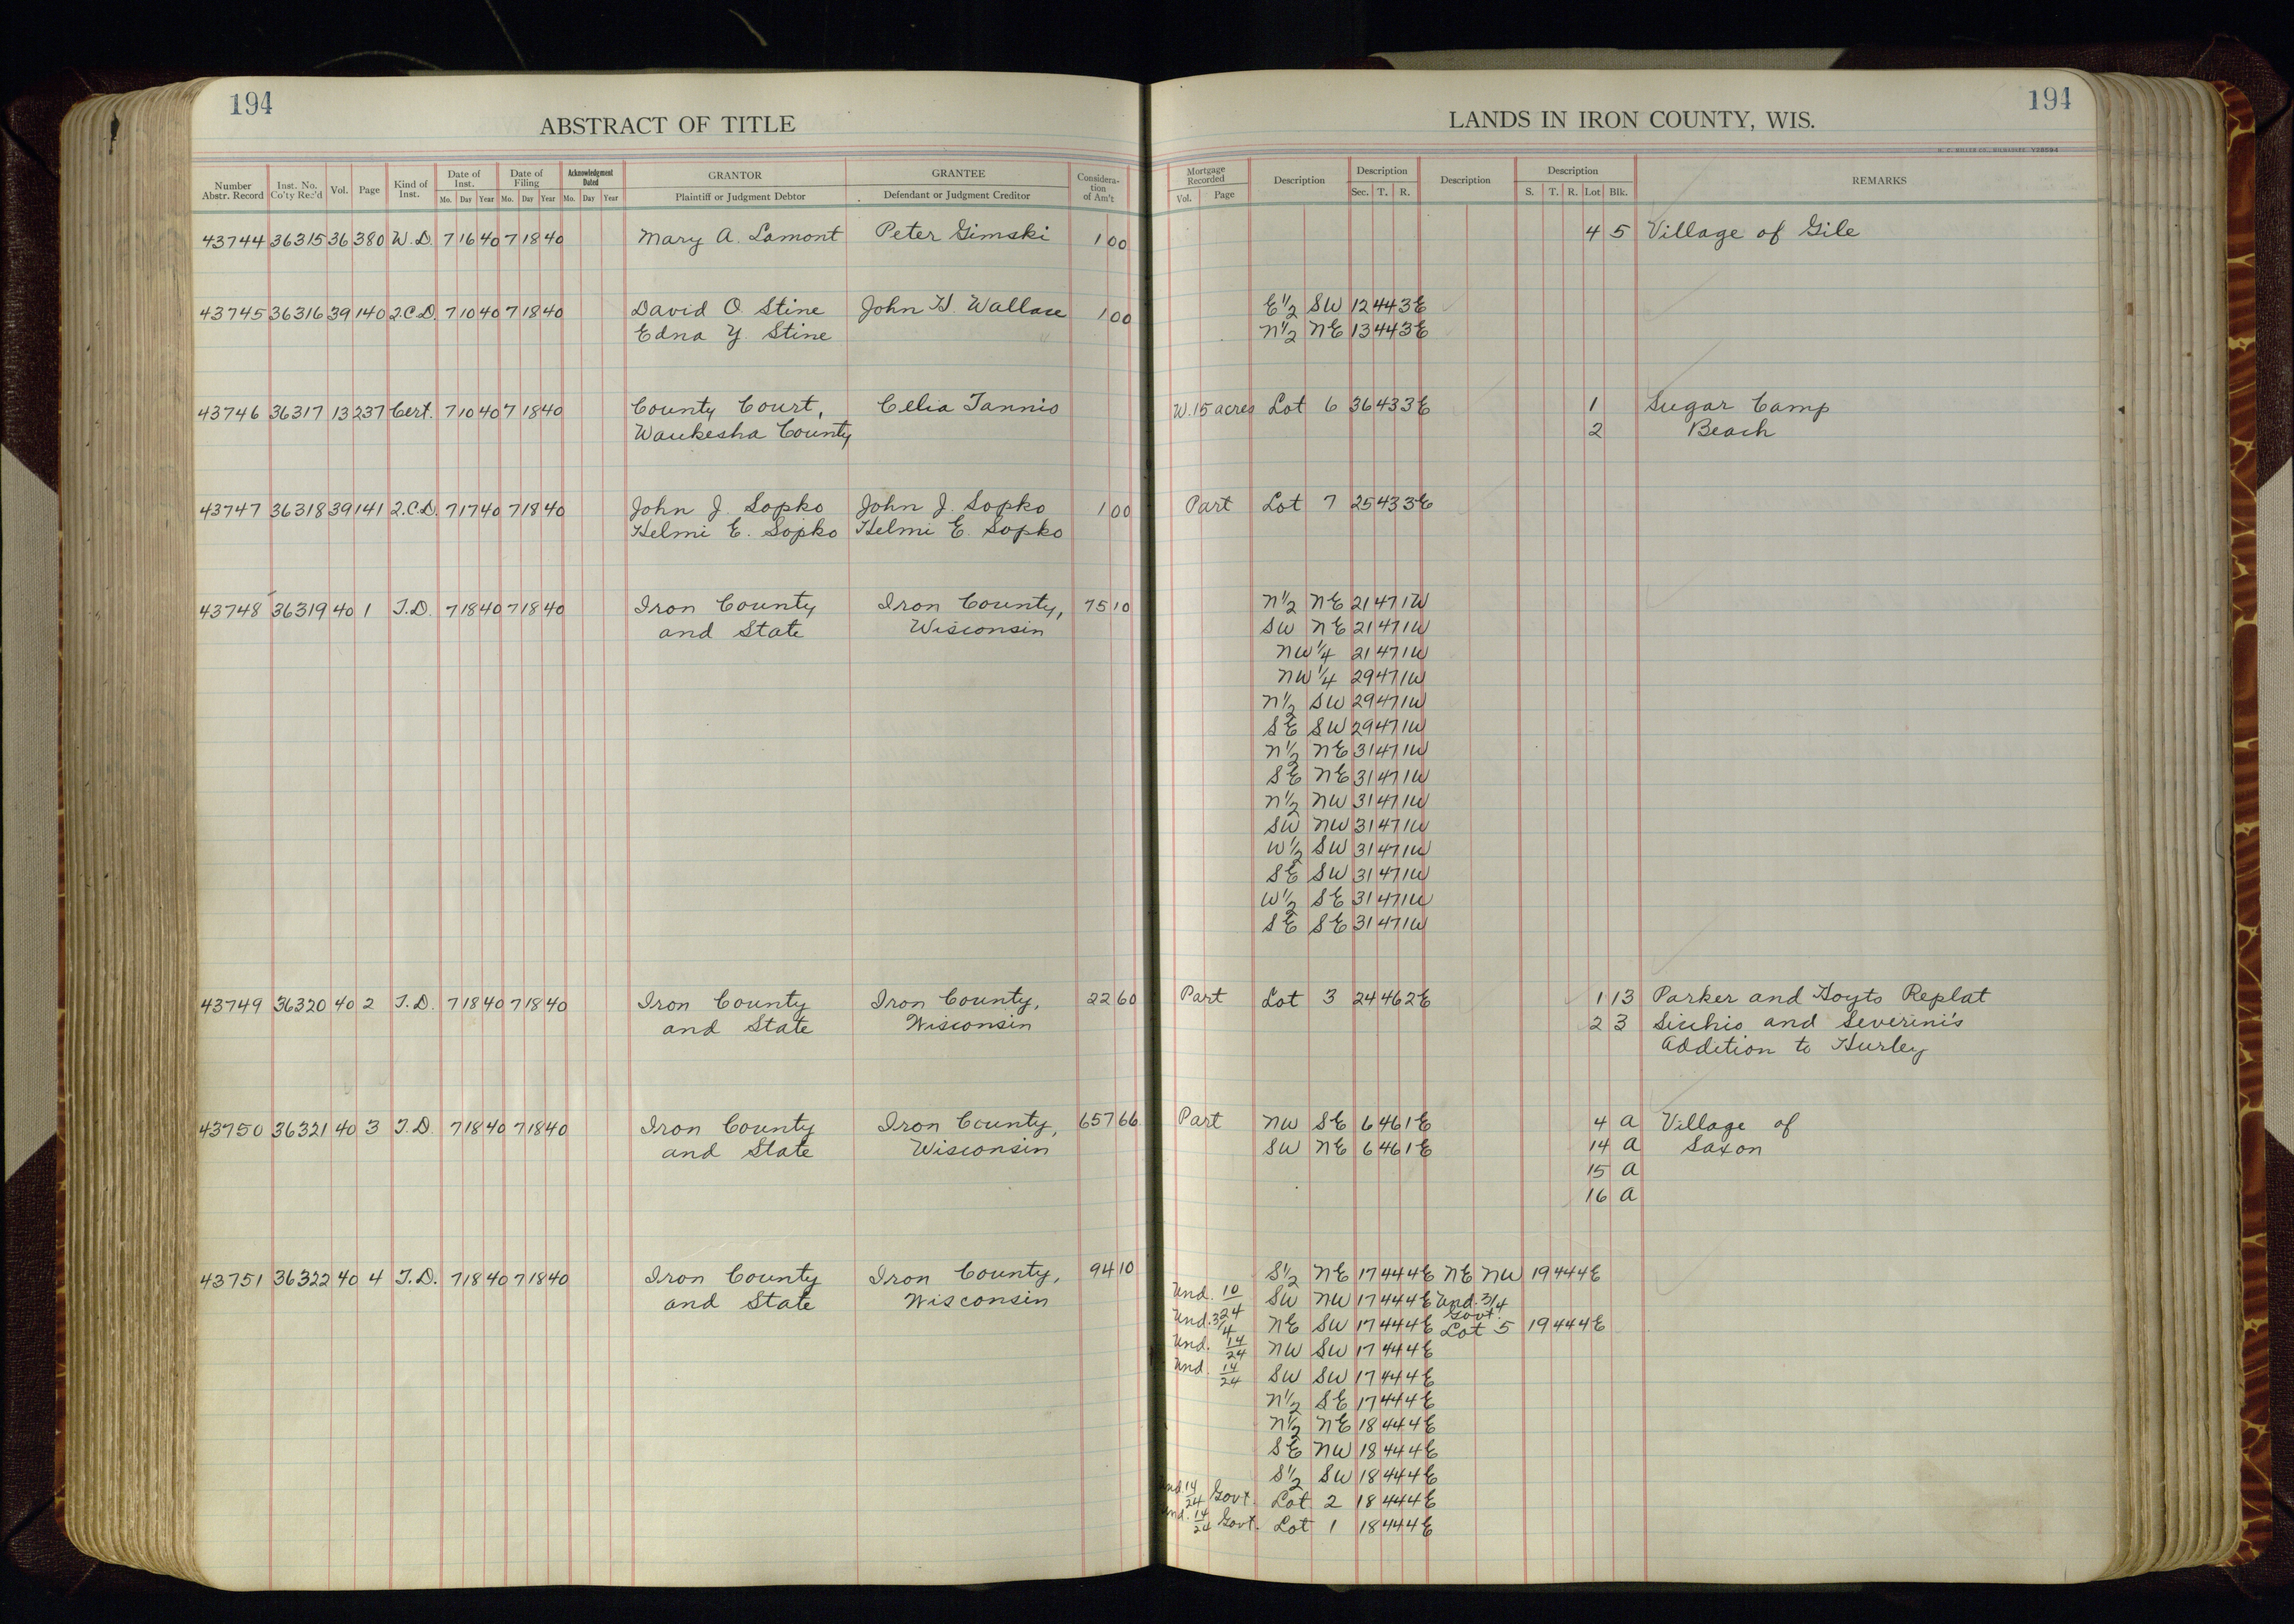 194
ABSTRACT OF TITLE
Number Abstr. Record Inst. No. Co'ty Rec'd Vol. Page Kind of Inst. Date of Inst. Mo. Day Year Date of Filing Mo. Day Year Acknowledgment Dated Mo. Day Year GRANTOR Plaintiff or Judgment Debtor GRANTEE Defendant or Judgment Creditor Consideration of Am't
43744 36315 36 380 W.D. 7 16 40 7 18 40 Mary A. Lamont Peter Gimski 1 00
43745 36316 39 140 2.C.D. 7 10 40 7 18 40 David O. Stine John H. Wallace 1 00
Edna Y. Stine
43746 36317 13 237 Cert. 7 10 40 7 18 40 County Court, Celia Tannis
Waukesha County
43747 36318 39 141 2.C.D. 7 17 40 7 18 40 John J. Sopko John J. Sopko 1 00
Helmi E. Sopko Helmi E. Sopko
43748 36319 40 1 T.D. 7 18 40 7 18 40 Iron County Iron County, 75 10
and State Wisconsin
43749 36320 40 2 T.D. 7 18 40 7 18 40 Iron County Iron County, 22 60
and State Wisconsin
43750 36321 40 3 T.D. 7 18 40 7 18 40 Iron County Iron County, 657 66
and State Wisconsin
43751 36322 40 4 T.D. 7 18 40 7 18 40 Iron County Iron County, 94 10
and State Wisconsin
194
LANDS IN IRON COUNTY, WIS.
H. C. MILLER CO., MILWAUKEE
Mortgage Recorded Vol. Page Description Description Sec. T. R. Description Description S. T. R. Lot Blk. REMARKS
4 5 Village of Gile
E 1/2 SW 12 44 3E
N 1/2 NE 13 44 3E
W. 15 acres Lot 6 36 43 3E 1 Sugar Camp
2 Beach
Part Lot 7 25 43 3E
N 1/2 NE 21 47 1W
SW NE 21 47 1W
NW 1/4 21 47 1W
NW 1/4 29 47 1W
N 1/2 SW 29 47 1W
SE SW 29 47 1W
N 1/2 NE 31 47 1W
SE NE 31 47 1W
N 1/2 NW 31 47 1W
SW NW 31 47 1W
W 1/2 SW 31 47 1W
SE SW 31 47 1W
W 1/2 SE 31 47 1W
SE SE 31 47 1W
Part Lot 3 24 46 2E 1 13 Parker and Hoyts Replat
2 3 Sicchio and Severini's
Addition to Hurley
Part NW SE 6 46 1E 4 A Village of
SW NE 6 46 1E 14 A Saxon
15 A
16 A
S 1/2 NE 17 44 4E NE NW 19 44 4E
Und. 10/24 SW NW 17 44 4E Und. 3/4
Und. 3/4 NE SW 17 44 4E Govt. Lot 5 19 44 4E
Und. 14/24 NW SW 17 44 4E
Und. 14/24 SW SW 17 44 4E
N 1/2 SE 17 44 4E
N 1/2 NE 18 44 4E
SE NW 18 44 4E
S 1/2 SW 18 44 4E
Und. 14/24 Govt. Lot 2 18 44 4E
Und. 14/24 Govt. Lot 1 18 44 4E